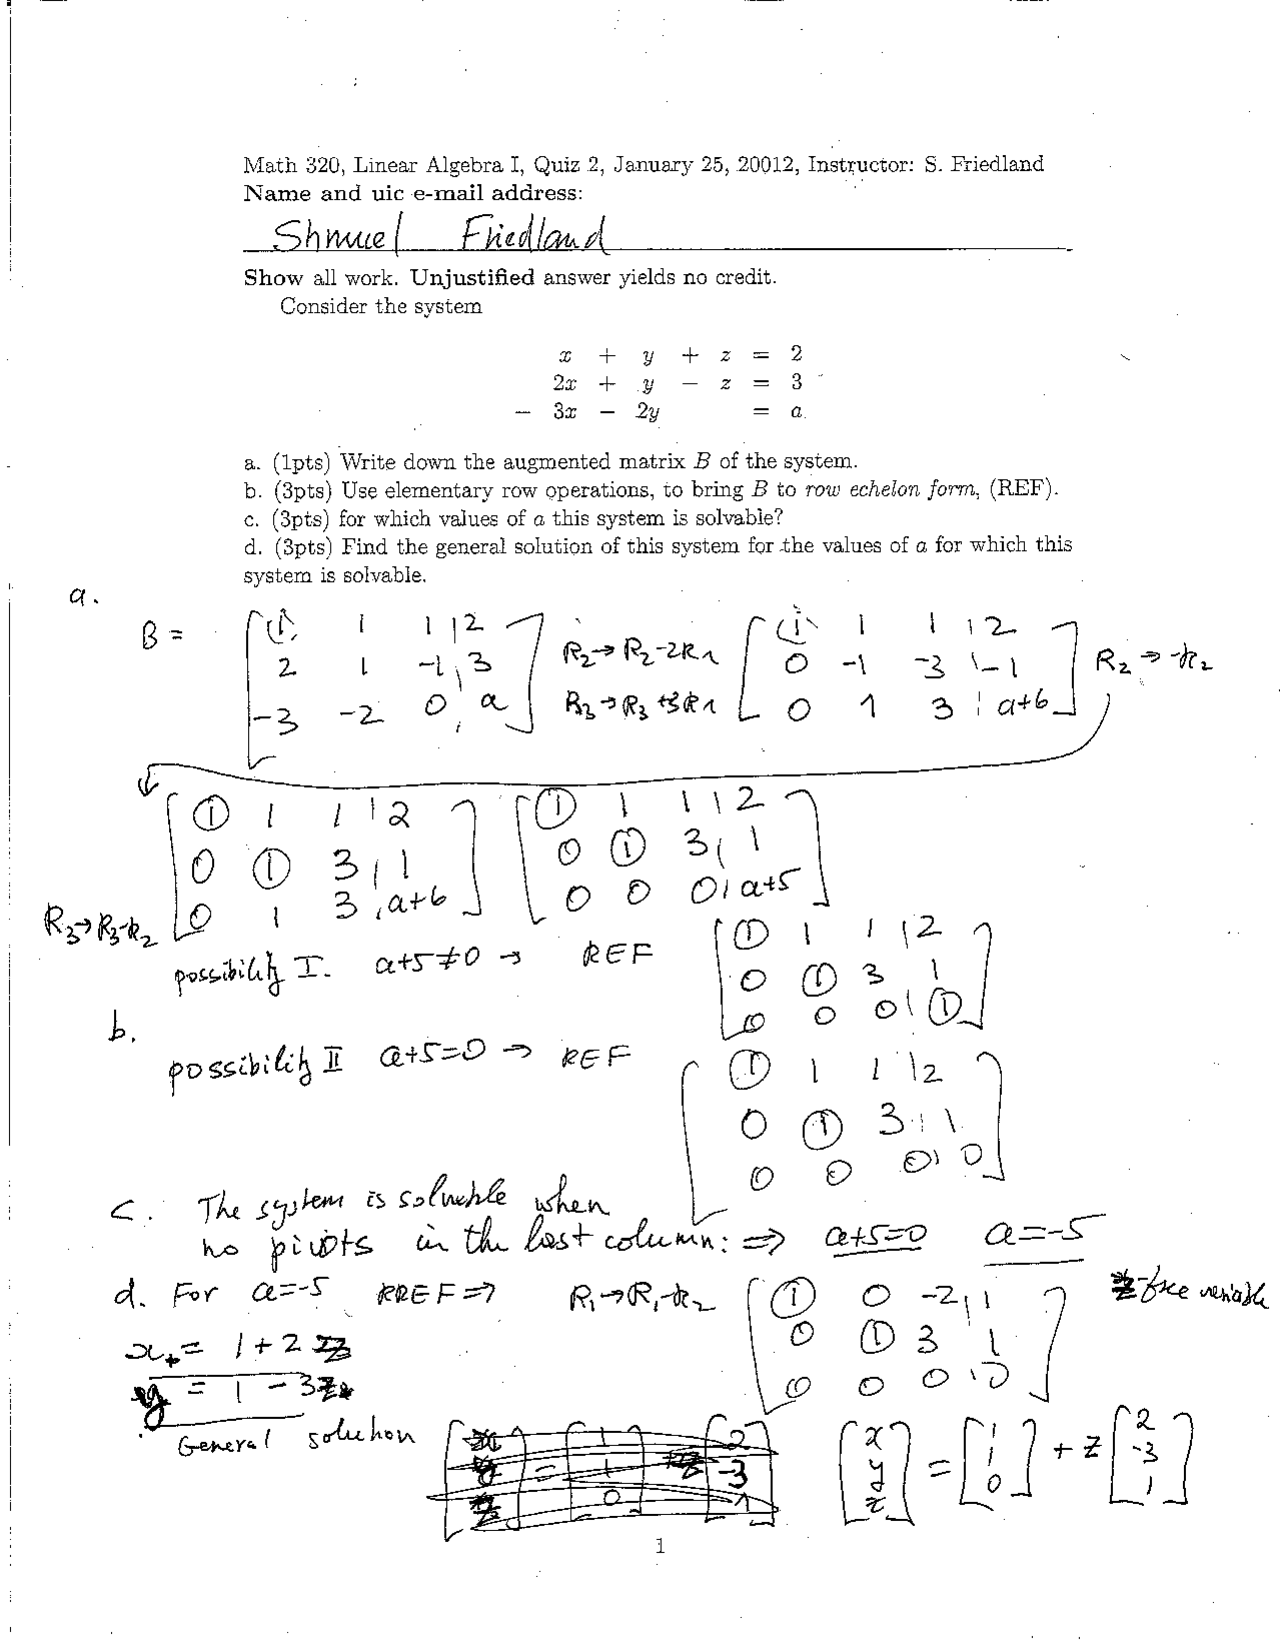 Math 320, Linear Algebra I, Quiz 2, January 25, 20012, Instructor: S. Friedland
Name and uic e-mail address:
Shmuel Friedland
Show all work. Unjustified answer yields no credit.
Consider the system
x + y + z = 2
2x + y − z = 3
− 3x − 2y = a
a. (1pts) Write down the augmented matrix B of the system.
b. (3pts) Use elementary row operations, to bring B to row echelon form, (REF).
c. (3pts) for which values of a this system is solvable?
d. (3pts) Find the general solution of this system for the values of a for which this
system is solvable.
a.
B =
1 1 1 | 2
2 1 -1 | 3
-3 -2 0 | a
R2→R2-2R1
R3→R3+3R1
1 1 1 | 2
0 -1 -3 | -1
0 1 3 | a+6
R2→-R2
1 1 1 | 2
0 1 3 | 1
0 1 3 | a+6
R3→R3-R2
1 1 1 | 2
0 1 3 | 1
0 0 0 | a+5
possibility I. a+5≠0 → REF
1 1 1 | 2
0 1 3 1
0 0 0 | 1
b.
possibility II a+5=0 → REF
1 1 1 | 2
0 1 3 | 1
0 0 0 | 0
c. The system is solvable when
no pivots in the last column: ⇒ a+5=0 a=-5
d. For a=-5 RREF⇒ R1→R1-R2
1 0 -2 | 1
0 1 3 1
0 0 0 | 0
z-free variable
x = 1+2z
y = 1-3z
General solution
x
y
z
=
1
1
0
+ z
2
-3
1
1